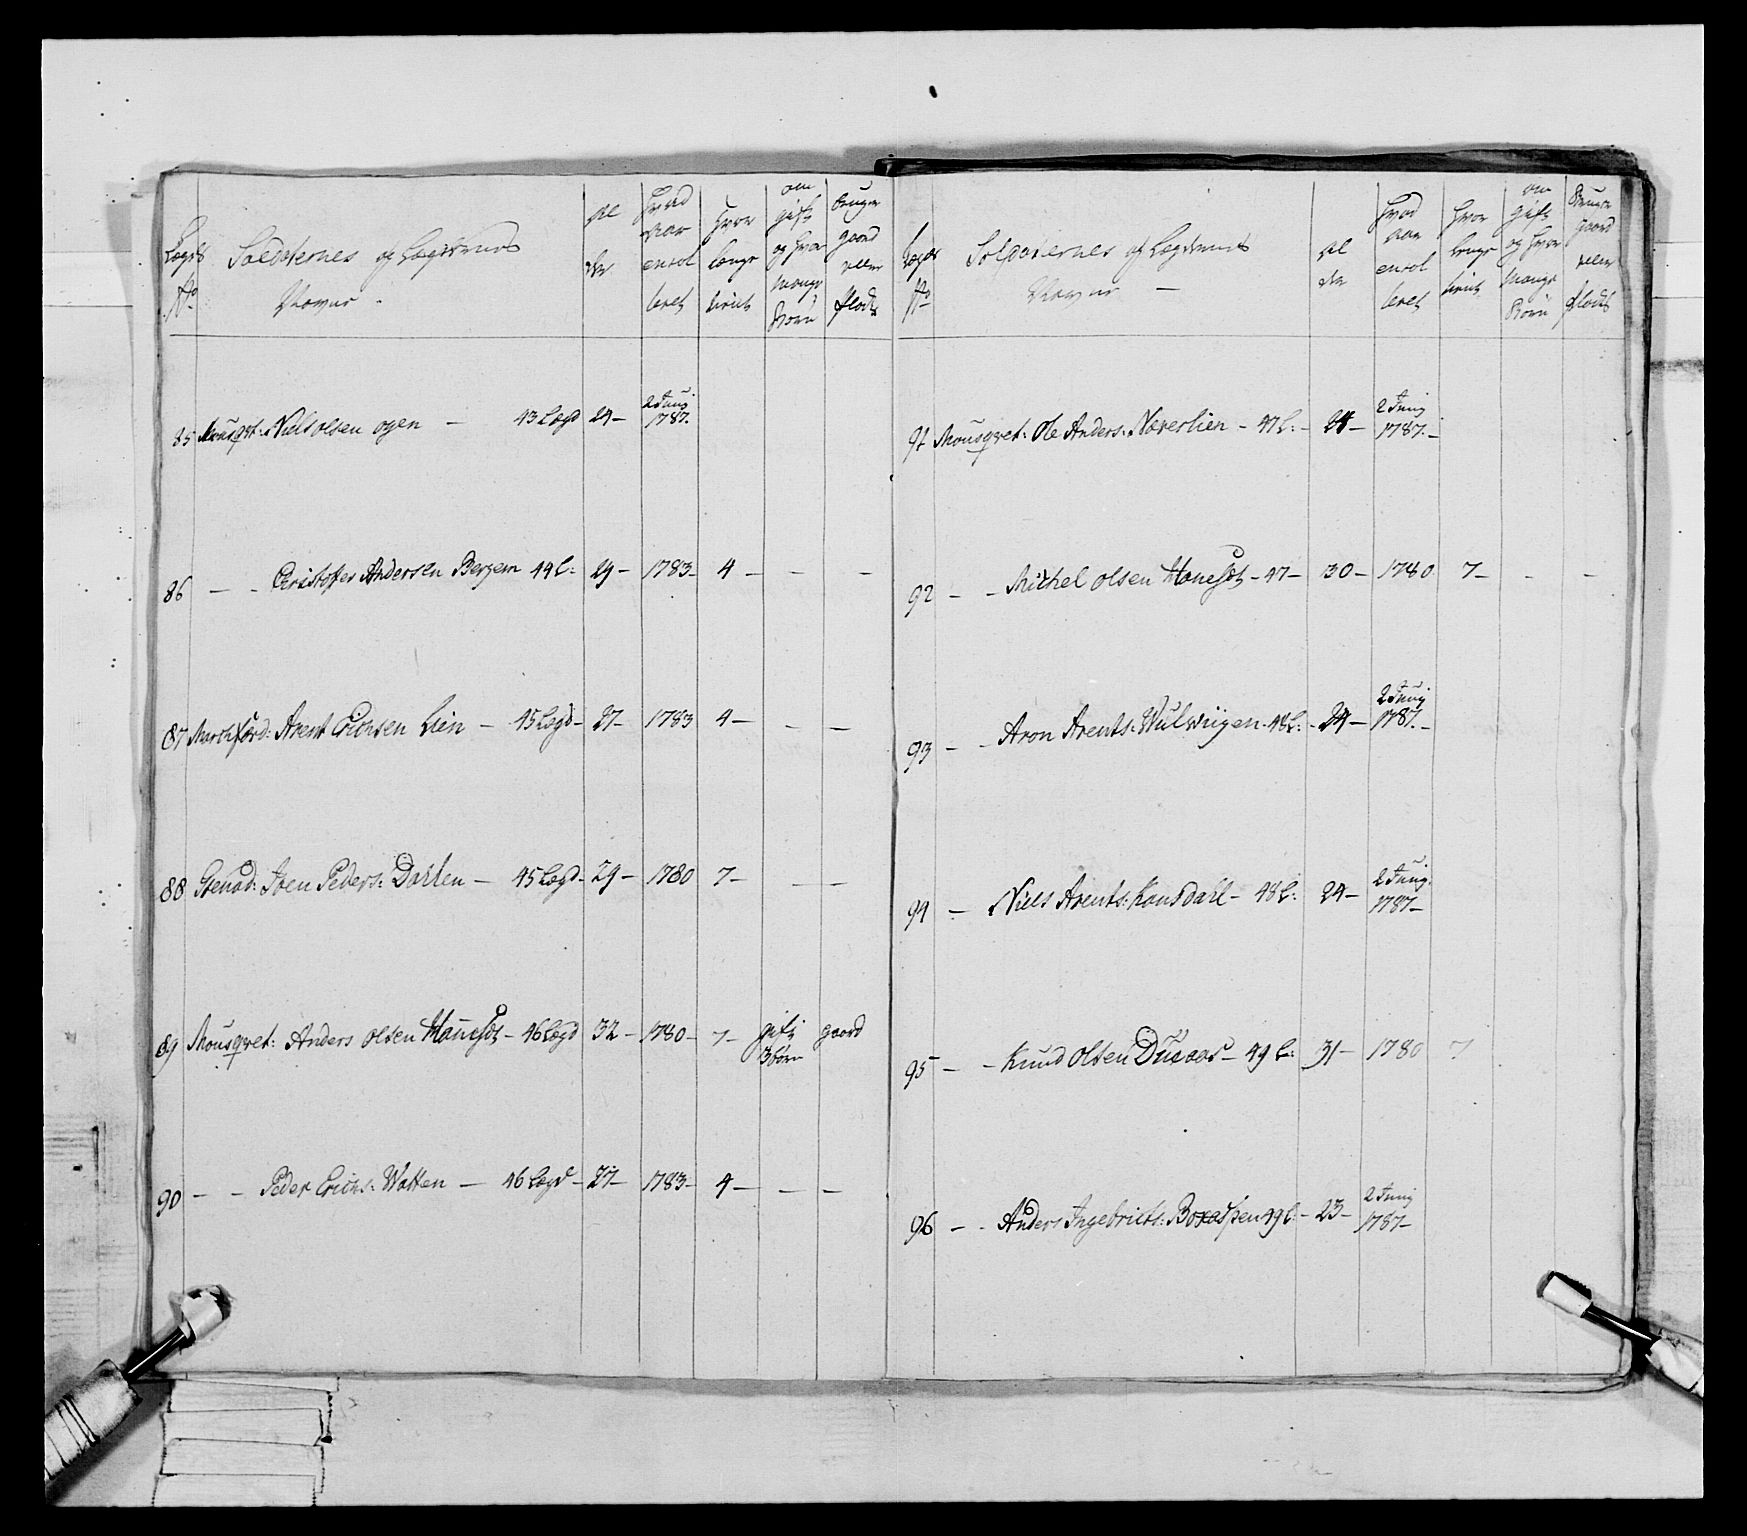 Lægds No
Soldaternes og Lægdernes Navne
Al der
Hvad Aar enrol leret
Hvor længe tient
om gift og hvor mange Børn
bruger gaard eller Plads
85 Mousqvet: Niels olsen ogen — 43 Lægd 24— 2 Junij 1787.
86 — - Christoffer Andersen Bergem 44 L: 29— 1783— 4— — —
87 Marchford: Arent Erichsen Lien — 45 Lægd— 27— 1783 4— — —
88 Grenad: Joen Peders: Dahlen — 45 Lægd— 29— 1780 7— — —
89 Mousqvet: Anders olsen — 46 Lægd 32— 1780— 7— gift 3 børn gaard
90 — — Peder Erichs: Watten — 46 Lægd— 27— 1783— 4— — —
Lægds No
Soldaternes og Lægdernes Navne —
Al der
Hvad Aar enrol leret
Hvor længe tient
om gift og hvor mange Børn
Bruger gaard eller Plads
91 Mousqvet: Ole Anders: Næverlien — 47 L:— 24— 2 Junij 1787.—
92 — — Michel olsen — 47— 30— 1780 7— — —
93 — - Aron Arents: Wulwiigen - 48 L:— 24— 2 Junij 1787.—
94 — Niels Arents: Konsdahl — 48 L: 24— 2 Junij 1787—
95 — — Knud Olsen Duaas — 49 L: 31— 1780 7
96 — - Anders Ingebricts: Boraaspen 49 L:— 23— 2 Junij 1787—